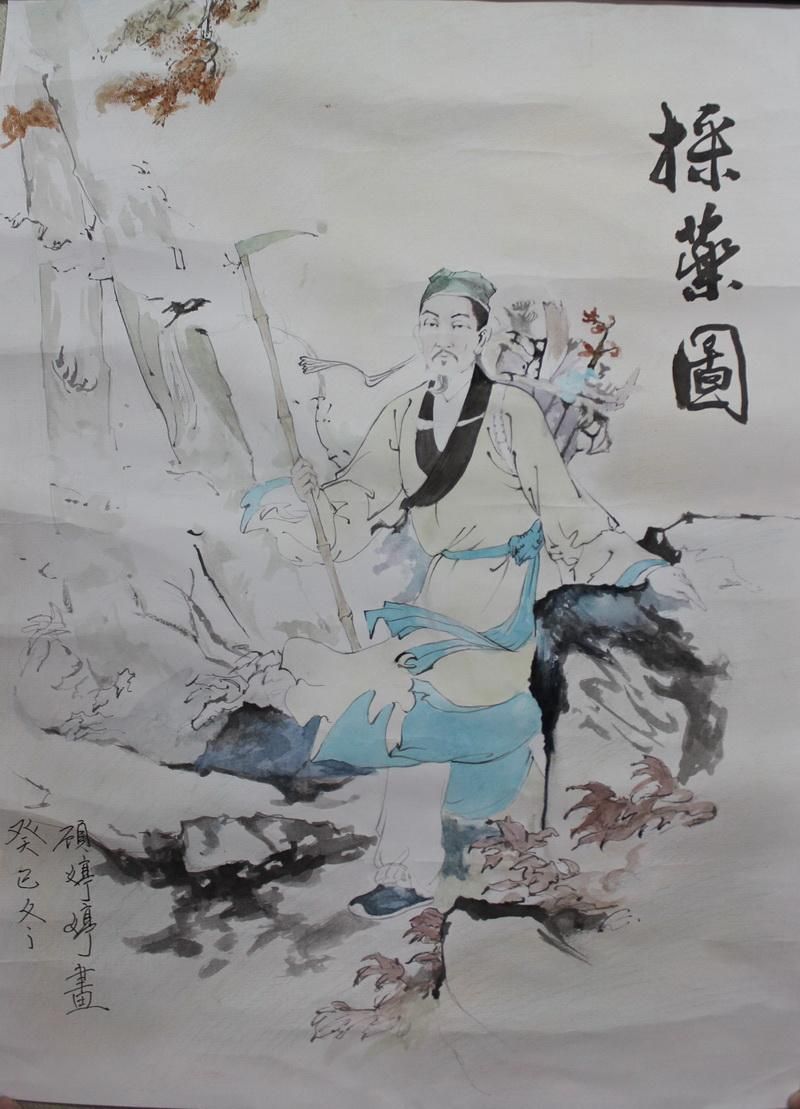 採薬圖
癸巳冬
顾婷婷畫